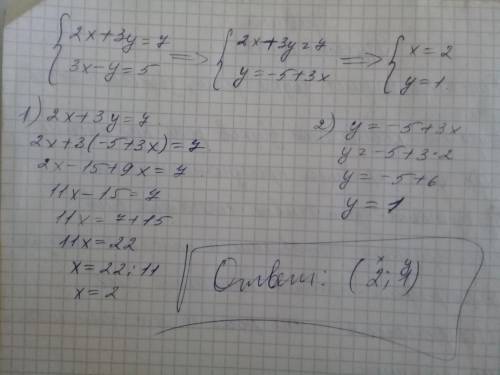 { 2x+3y=7 => { 2x+3y=7 => { x=2
{ 3x-y=5 { y=-5+3x { y=1
1) 2x+3y=7
2x+3(-5+3x)=7
2x-15+9x=7
11x-15=7
11x=7+15
11x=22
x=22:11
x=2
2) y=-5+3x
y=-5+3·2
y=-5+6
y=1
x y
Ответ: (2; 1)